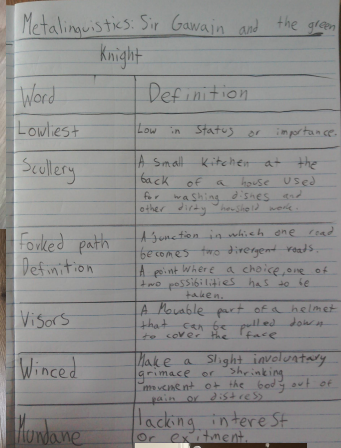 Metalinguistics: Sir Gawain and the green
Knight
Word
Definition
Lowliest
Low in status or importance.
Scullery
A small kitchen at the
back of a house used
for washing dishes and
other dirty household work.
Forked path
Definition
A junction in which one road
becomes two divergent roads.
A point where a choice, one of
two possibilities has to be
taken.
Visors
A Movable part of a helmet
that can be pulled down
to cover the face
Winced
Make a Slight involuntary
grimace or shrinking
movement of the body out of
pain or distress
Mundane
lacking interest
or exitment.